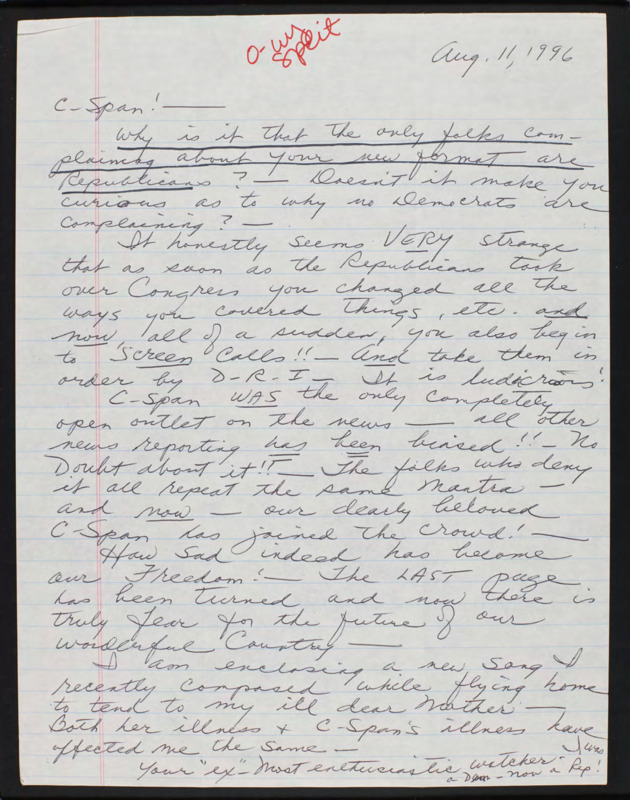 O-My
Split
Aug. 11, 1996
C-Span! —
Why is it that the only folks com-
plaining about your new format are
Republicans? — Doesn't it make you
curious as to why no Democrats are
complaining? —
It honestly seems VERY strange
that as soon as the Republicans took
over Congress you changed all the
ways you covered things, etc. and
now, all of a sudden, you also begin
to screen calls!! — And take them in
order by D-R-I — It is ludicrious!
C-Span WAS the only completely
open outlet on the news — all other
news reporting has been biased!! — No
Doubt about it!! — The folks who deny
it all repeat the same mantra —
and now — our dearly beloved
C-Span has joined the crowd! —
How Sad indeed has become
our Freedom! — The LAST page
has been turned and now there is
truly fear for the future of our
wonderful Country —
I am enclosing a new song I
recently composed while flying home
to tend to my ill dear Mother —
Both her illness + C-Span's illness have
affected me the same —
Your "ex"-most enthusiastic watcher
I was
a Dem - now a Rep!